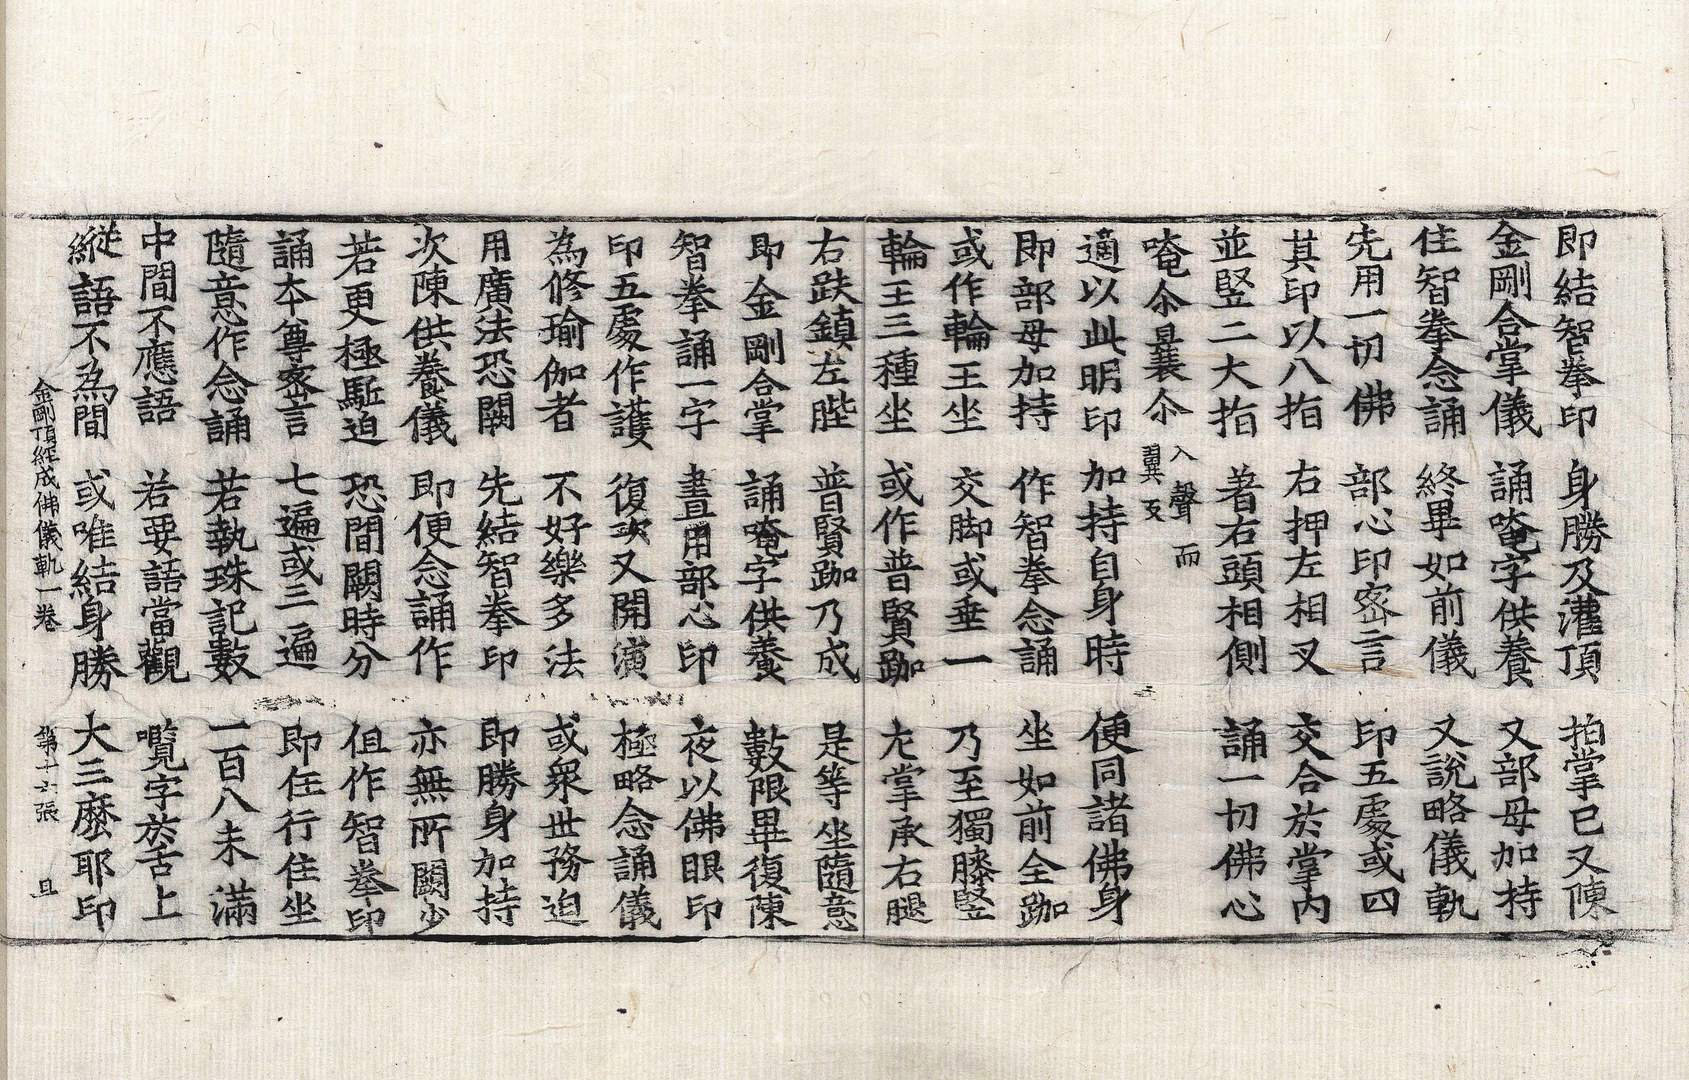 即結智拳印 身勝及灌頂 拍掌已又陳
金剛合掌儀 誦唵字供養 又部母加持
住智拳念誦 終畢如前儀 又說略儀軌
先用一切佛 部心印密言 印五處或四
其印以八指 右押左相叉 交合於掌內
並竪二大指 著右頭相側 誦一切佛心
唵尒曩尒 入聲而翼反
適以此明印 加持自身時 便同諸佛身
即部母加持 作智拳念誦 坐如前全跏
或作輪王坐 交脚或垂一 乃至獨膝竪
輪王三種坐 或作普賢跏 左掌承右腿
右趺鎮左䏶 普賢跏乃成 是等坐隨意
即金剛合掌 誦唵字供養 數限畢復陳
智拳誦一字 晝用部心印 夜以佛眼印
印五處作護 復次又開演 極略念誦儀
為修瑜伽者 不好樂多法 或衆世務迫
用廣法恐闕 先結智拳印 即勝身加持
次陳供養儀 即便念誦作 亦無所闕少
若更極駈迫 恐間闕時分 但作智拳印
誦本尊密言 七遍或三遍 即任行住坐
隨意作念誦 若執珠記數 一百八未滿
中間不應語 若要語當觀 囕字於舌上
縱語不為間 或唯結身勝 大三麼耶印
金剛頂經成佛儀軌一卷 第十六張 旦